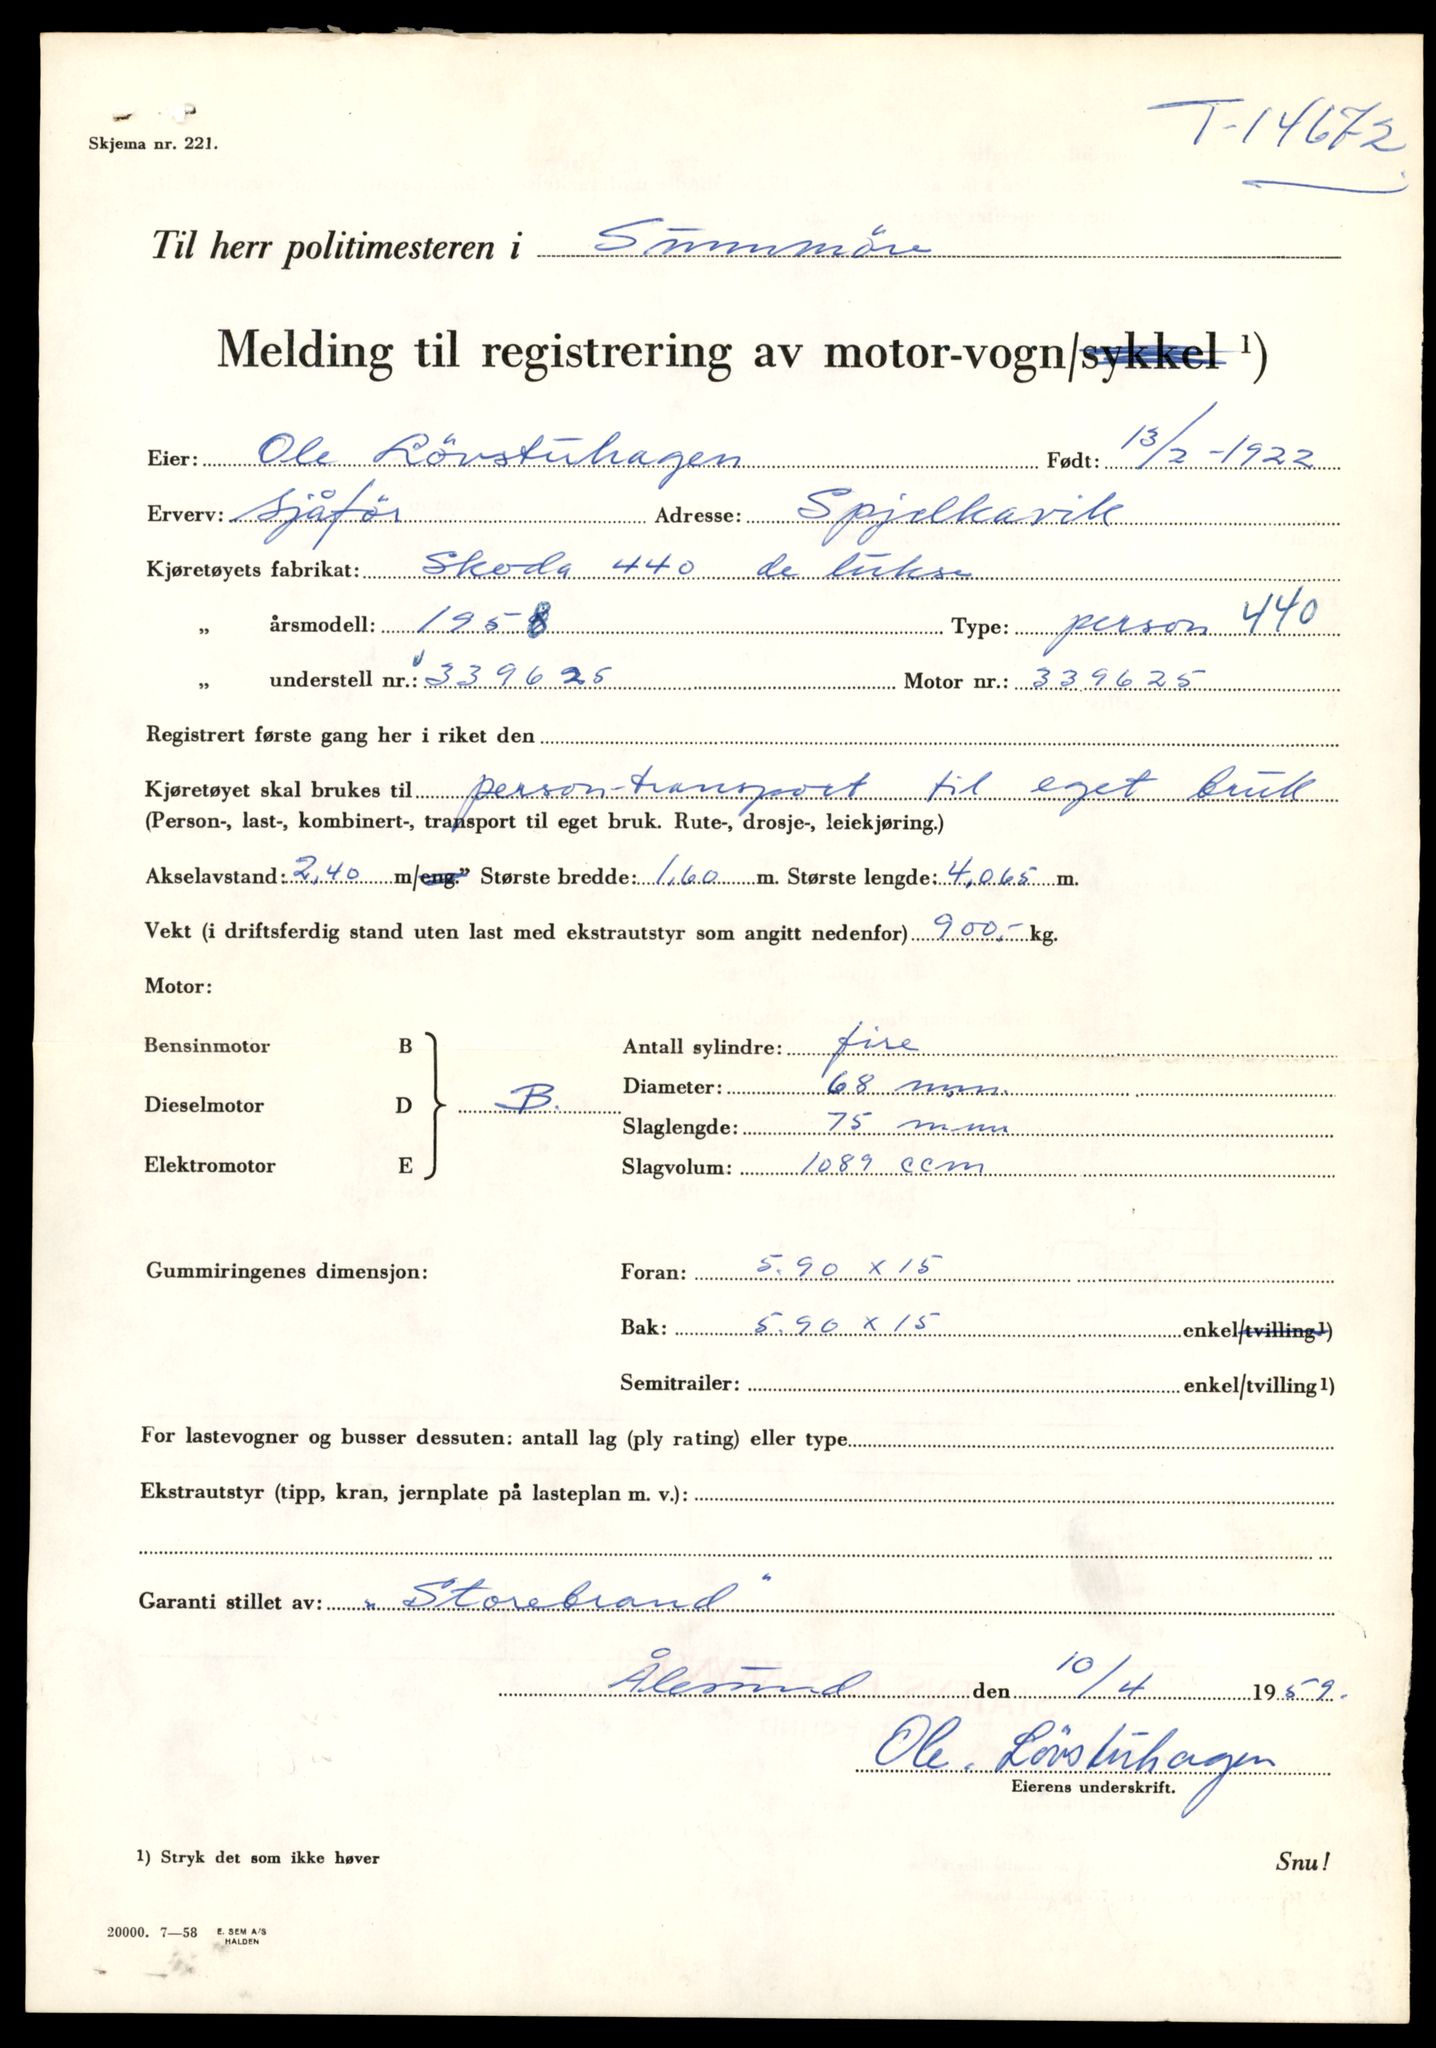 T-14672
Skjema nr. 221.
Til herr politimesteren i Sunnmöre
Melding til registrering av motor-vogn/sykkel 1)
Eier: Ole Lövstuhagen Født: 13/2-1922
Erverv: sjåför Adresse: Spjelkavik
Kjøretøyets fabrikat: Skoda 440 de lukse
„ årsmodell: 1958 Type: person 440
„ understell nr.: 339625 Motor nr.: 339625
Registrert første gang her i riket den
Kjøretøyet skal brukes til person-transport til eget bruk
(Person-, last-, kombinert-, transport til eget bruk. Rute-, drosje-, leiekjøring.)
Akselavstand: 2,40 m/eng.” Største bredde: 1,60 m. Største lengde: 4,065 m.
Vekt (i driftsferdig stand uten last med ekstrautstyr som angitt nedenfor) 900,- kg.
Motor:
Bensinmotor B Antall sylindre: fire
Diameter: 68 mm.
Dieselmotor D B.
Slaglengde: 75 mm
Elektromotor E Slagvolum: 1089 ccm
Gummiringenes dimensjon: Foran: 5.90 x 15
Bak: 5.90 x 15 enkel/tvilling1)
Semitrailer: enkel/tvilling1)
For lastevogner og busser dessuten: antall lag (ply rating) eller type
Ekstrautstyr (tipp, kran, jernplate på lasteplan m. v.):
Garanti stillet av: „Storebrand”
Ålesund den 10/4 1959.
Ole Lövstuhagen
Eierens underskrift.
1) Stryk det som ikke høver
Snu!
20000. 7—58 E. SEM A/S
HALDEN